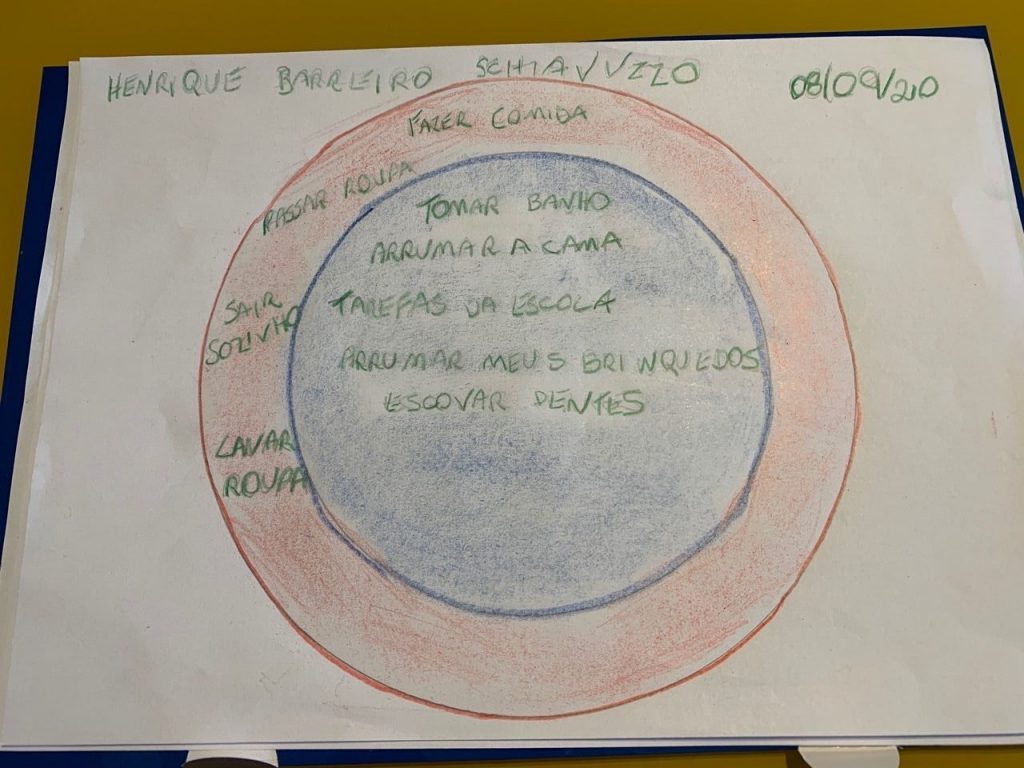 HENRIQUE BARREIRO SCHIAVUZZO 08/09/20
FAZER COMIDA
PASSAR ROUPA
TOMAR BANHO
ARRUMAR A CAMA
SAIR
SOZINHO
TAREFAS DA ESCOLA
ARRUMAR MEUS BRINQUEDOS
ESCOVAR DENTES
LAVAR
ROUPA